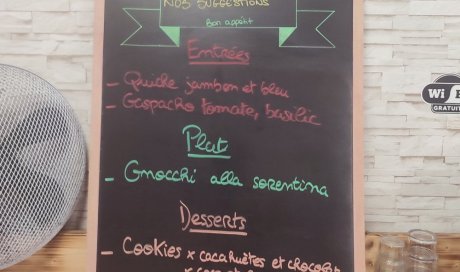 NOS SUGGESTIONS
Bon appétit
Entrées
- Quiche jambon et bleu
- Gaspacho tomate, basilic
Plat
- Gnocchi alla sorentina
Desserts
- Cookies x cacahuètes et chocolat
Wi
GRATUIT